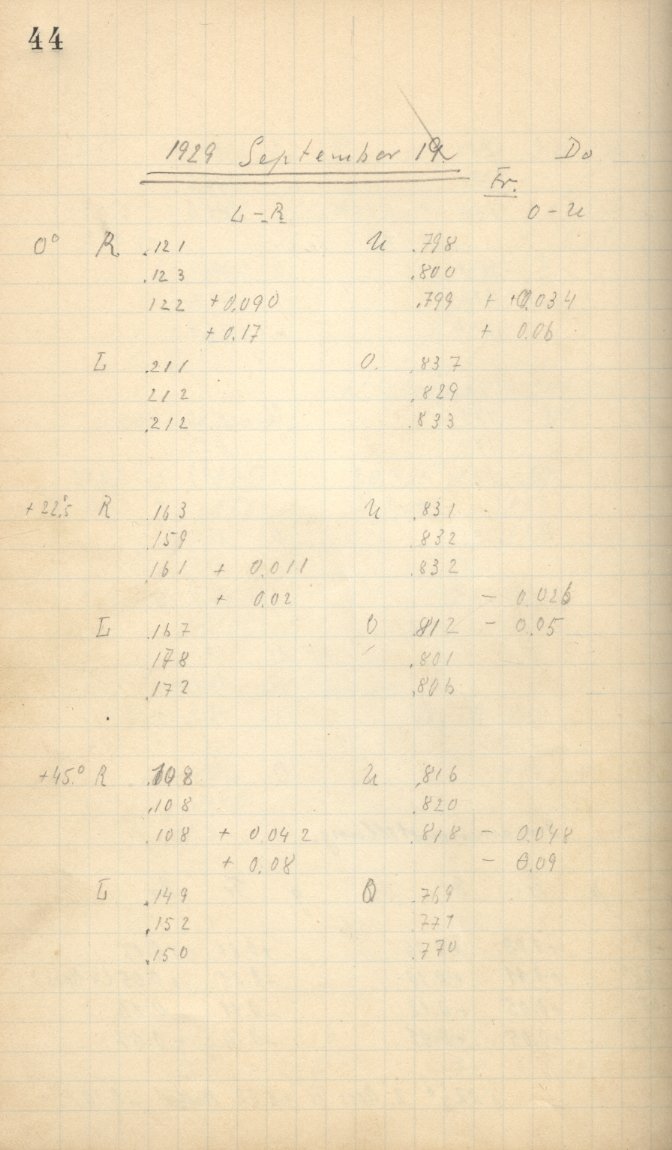 44
1929 September 19 Do
Fr.
L-R O-U
0° R .121 U .798
.123 .800
122 +0.090 .799 + +0.034
+0.17 + 0.06
L .211 O. .837
212 .829
.212 .833
+22°.5 R .163 U .831
.159 .832
.161 + 0.011 .832
+ 0.02 - 0.026
L .167 O .812 - 0.05
178 .801
.172 .806
+45.° R .108 U .816
.108 .820
.108 + 0.042 .818 - 0.048
+ 0.08 - 0.09
L .149 O .769
.152 .771
.150 .770